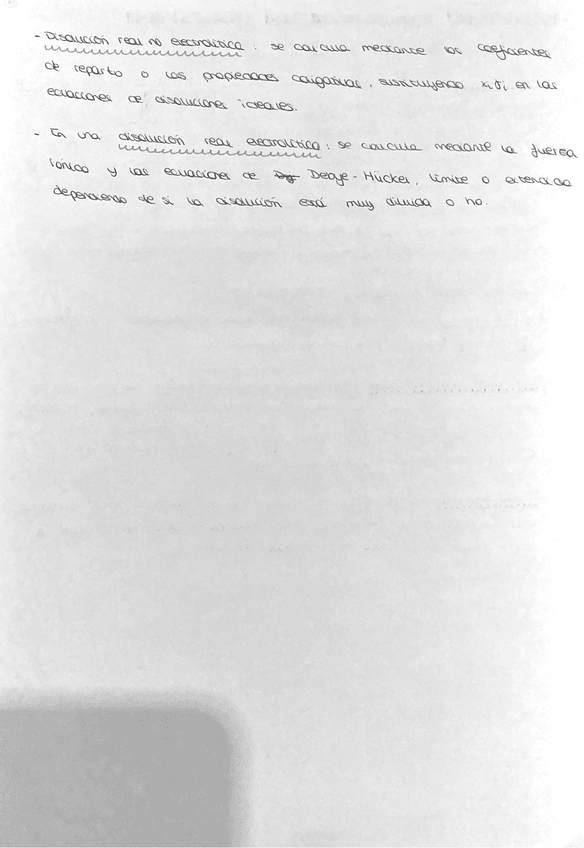 - Disolución real no electrolítica : se calcula mediante los coeficientes
de reparto o las propiedades coligativas, sustituyendo xᵢ·γᵢ en las
ecuaciones de disoluciones ideales.
- En una disolución real electrolítica : se calcula mediante la fuerza
iónica y las ecuaciones de Debye-Hückel, límite o extendida
dependiendo de si la disolución está muy diluida o no.